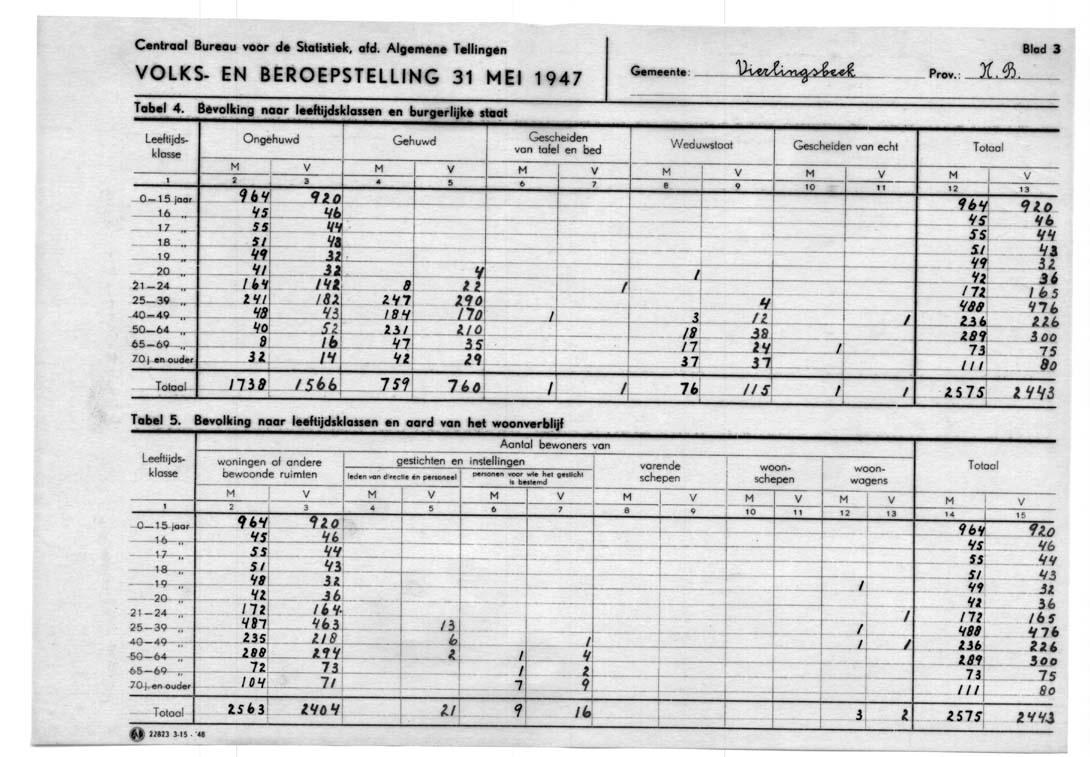 Centraal Bureau voor de Statistiek, afd. Algemene Tellingen
VOLKS- EN BEROEPSTELLING 31 MEI 1947
Gemeente: Vierlingsbeek Prov.: N.B.
Blad 3
Tabel 4. Bevolking naar leeftijdsklassen en burgerlijke staat
Leeftijds-klasse Ongehuwd Gehuwd Gescheiden van tafel en bed Weduwstaat Gescheiden van echt Totaal
M V M V M V M V M V M V
1 2 3 4 5 6 7 8 9 10 11 12 13
0—15 jaar 964 920 964 920
16 „ 45 46 45 46
17 „ 55 44 55 44
18 „ 51 43 51 43
19 „ 49 32 49 32
20 „ 41 32 4 1 42 36
21—24 „ 164 142 8 22 1 172 165
25—39 „ 241 182 247 290 4 488 476
40—49 „ 48 43 184 170 1 3 12 1 236 226
50—64 „ 40 52 231 210 18 38 289 300
65—69 „ 8 16 47 35 17 24 1 73 75
70 j. en ouder 32 14 42 29 37 37 111 80
Totaal 1738 1566 759 760 1 1 76 115 1 1 2575 2443
Tabel 5. Bevolking naar leeftijdsklassen en aard van het woonverblijf
Aantal bewoners van
Leeftijds-klasse woningen of andere bewoonde ruimten gestichten en instellingen varende schepen woon-schepen woon-wagens Totaal
leden van directie en personeel personen voor wie het gesticht is bestemd
M V M V M V M V M V M V M V
1 2 3 4 5 6 7 8 9 10 11 12 13 14 15
0—15 jaar 964 920 964 920
16 „ 45 46 45 46
17 „ 55 44 55 44
18 „ 51 43 51 43
19 „ 48 32 1 49 32
20 „ 42 36 42 36
21—24 „ 172 164 1 172 165
25—39 „ 487 463 13 1 488 476
40—49 „ 235 218 6 1 1 1 236 226
50—64 „ 288 294 2 1 4 289 300
65—69 „ 72 73 1 2 73 75
70 j. en ouder 104 71 7 9 111 80
Totaal 2563 2404 21 9 16 3 2 2575 2443
22823 3-15 - '48